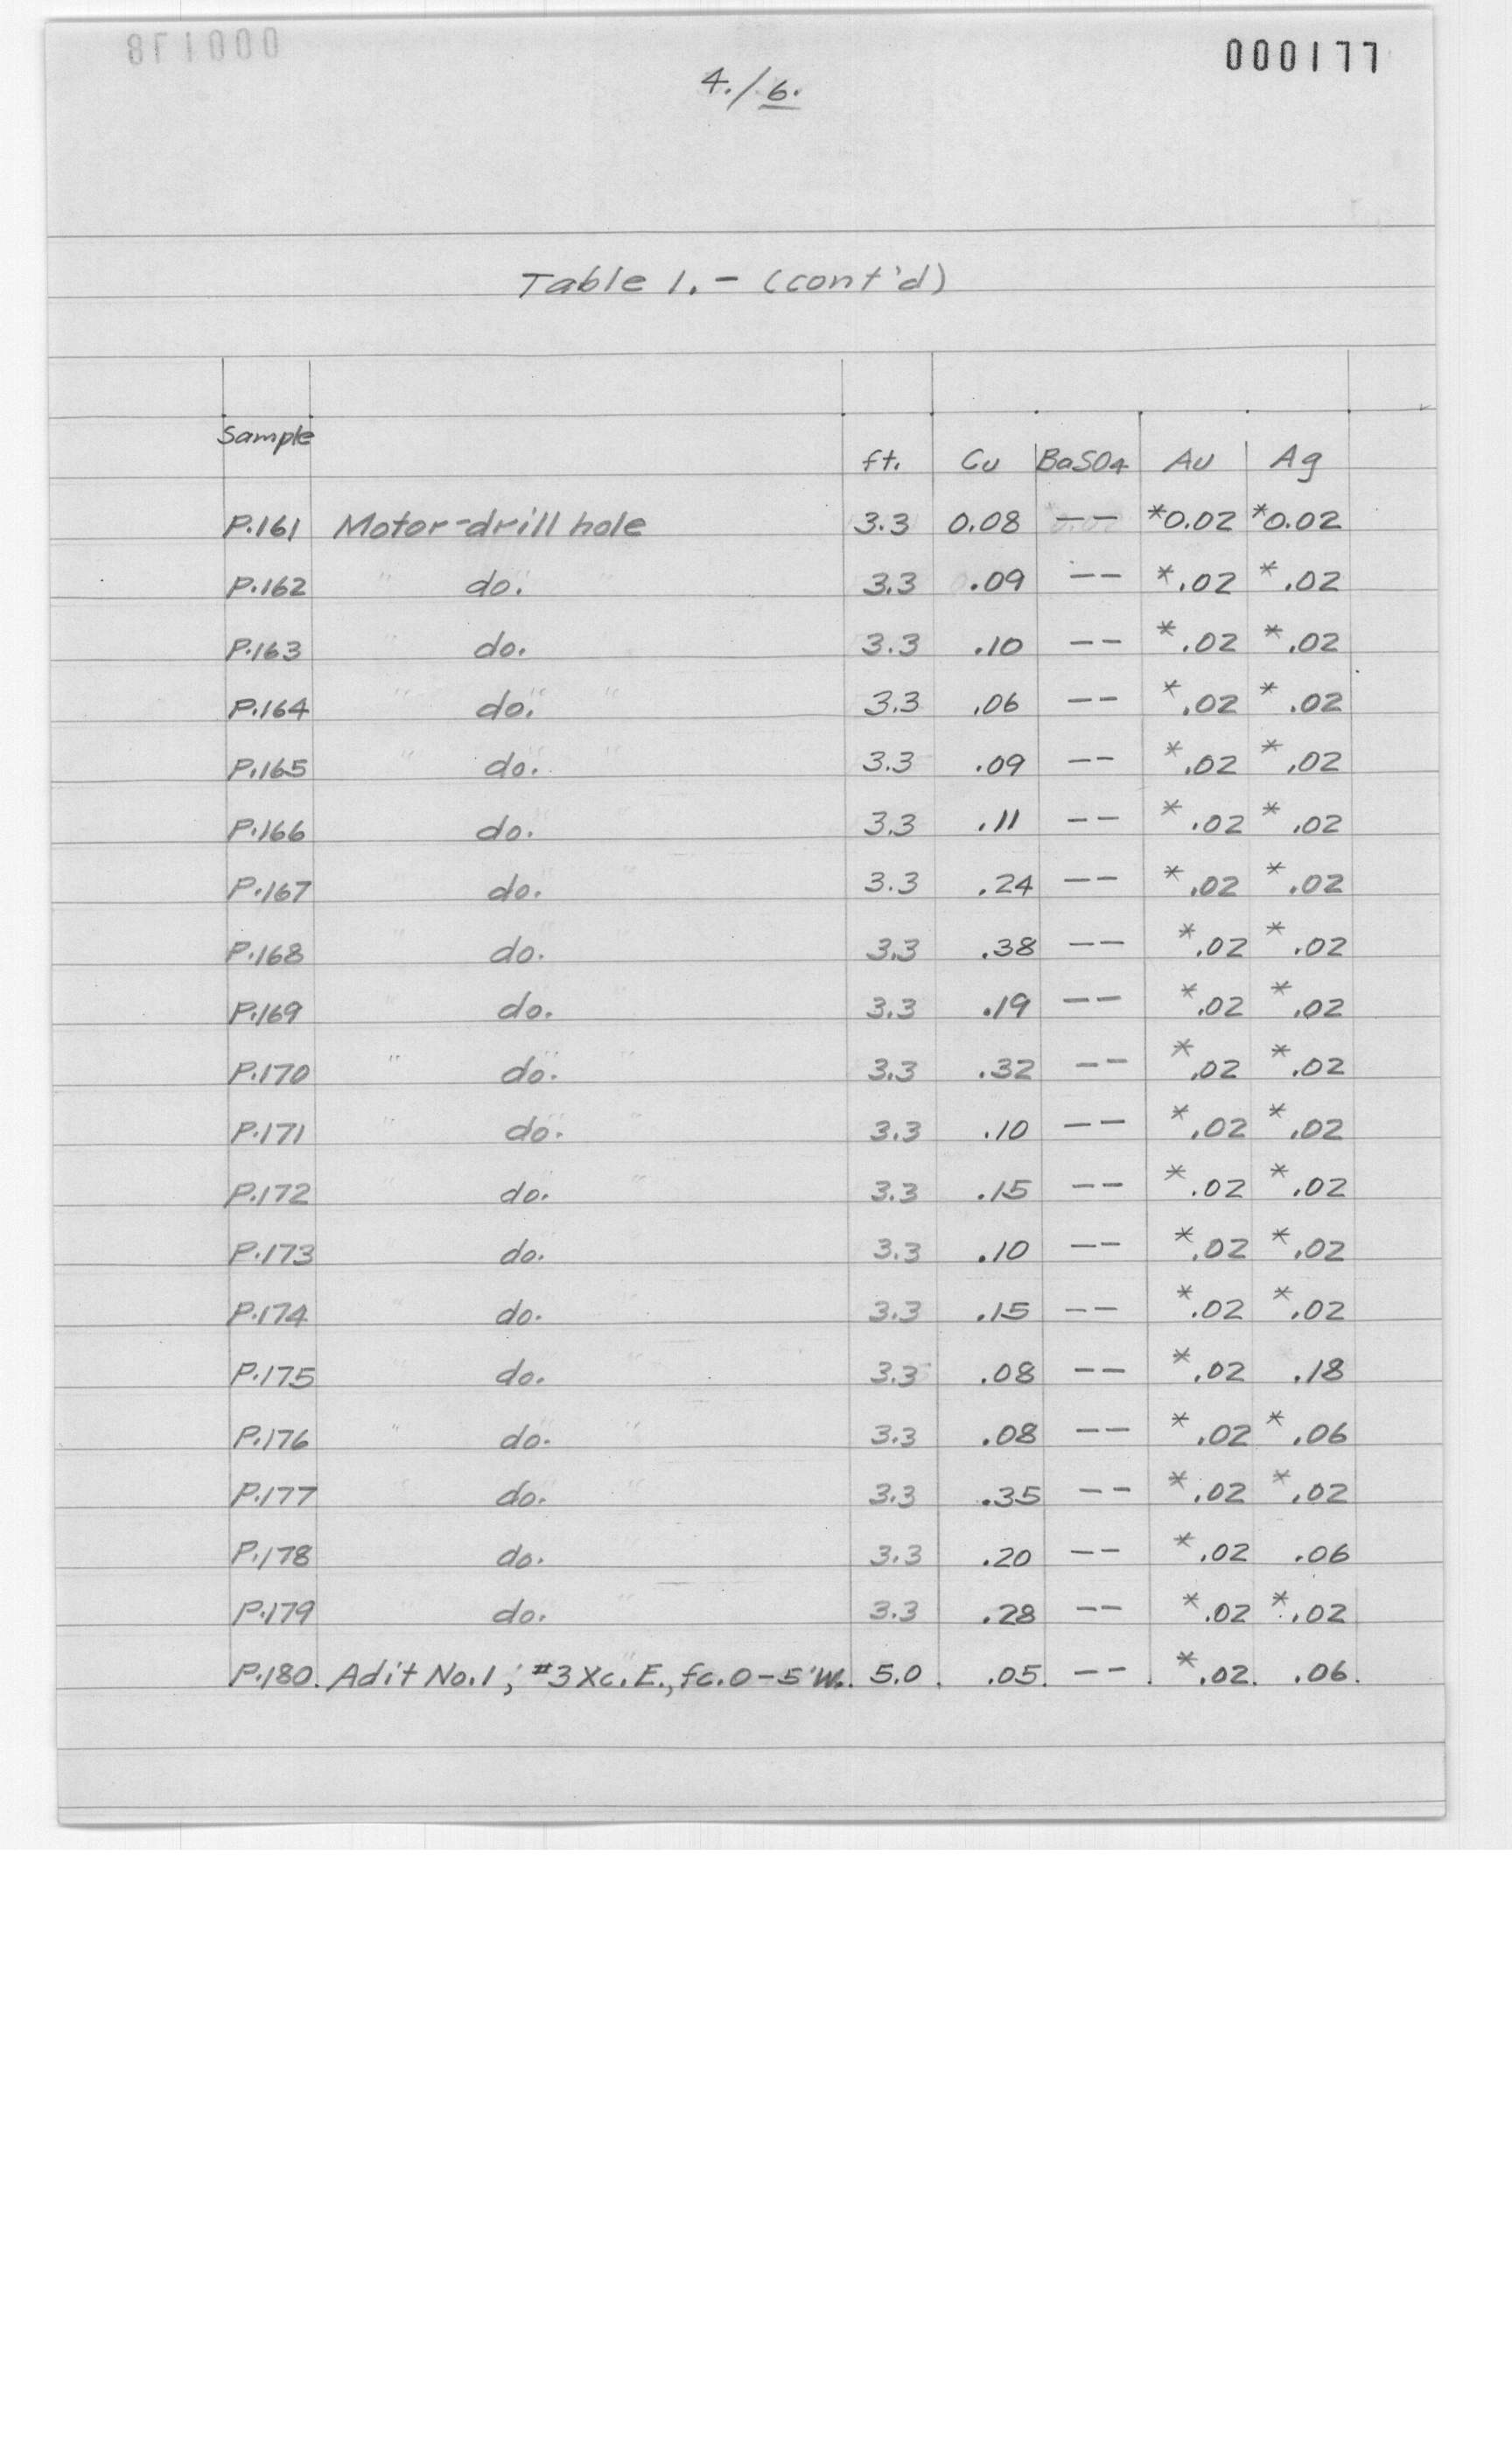 000177
4./6.
Table 1. - (cont'd)
Sample ft. Cu BaSO4 Au Ag
P.161 Motor-drill hole 3.3 0.08 -- *0.02 *0.02
P.162 do. 3.3 .09 -- *.02 *.02
P.163 do. 3.3 .10 -- *.02 *.02
P.164 do. 3.3 .06 -- *.02 *.02
P.165 do. 3.3 .09 -- *.02 *.02
P.166 do. 3.3 .11 -- *.02 *.02
P.167 do. 3.3 .24 -- *.02 *.02
P.168 do. 3.3 .38 -- *.02 *.02
P.169 do. 3.3 .19 -- *.02 *.02
P.170 do. 3.3 .32 -- *.02 *.02
P.171 do. 3.3 .10 -- *.02 *.02
P.172 do. 3.3 .15 -- *.02 *.02
P.173 do. 3.3 .10 -- *.02 *.02
P.174 do. 3.3 .15 -- *.02 *.02
P.175 do. 3.3 .08 -- *.02 .18
P.176 do. 3.3 .08 -- *.02 *.06
P.177 do. 3.3 .35 -- *.02 *.02
P.178 do. 3.3 .20 -- *.02 .06
P.179 do. 3.3 .28 -- *.02 *.02
P.180. Adit No.1, #3 Xc. E., fc. 0-5'W. 5.0 .05 -- *.02 .06